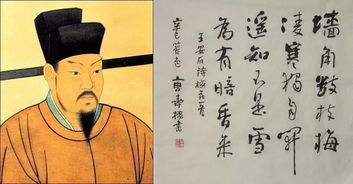 墙角数枝梅
凌寒独自開
遥知不是雪
為有暗香来
王安石詩梅花
辛巳
書